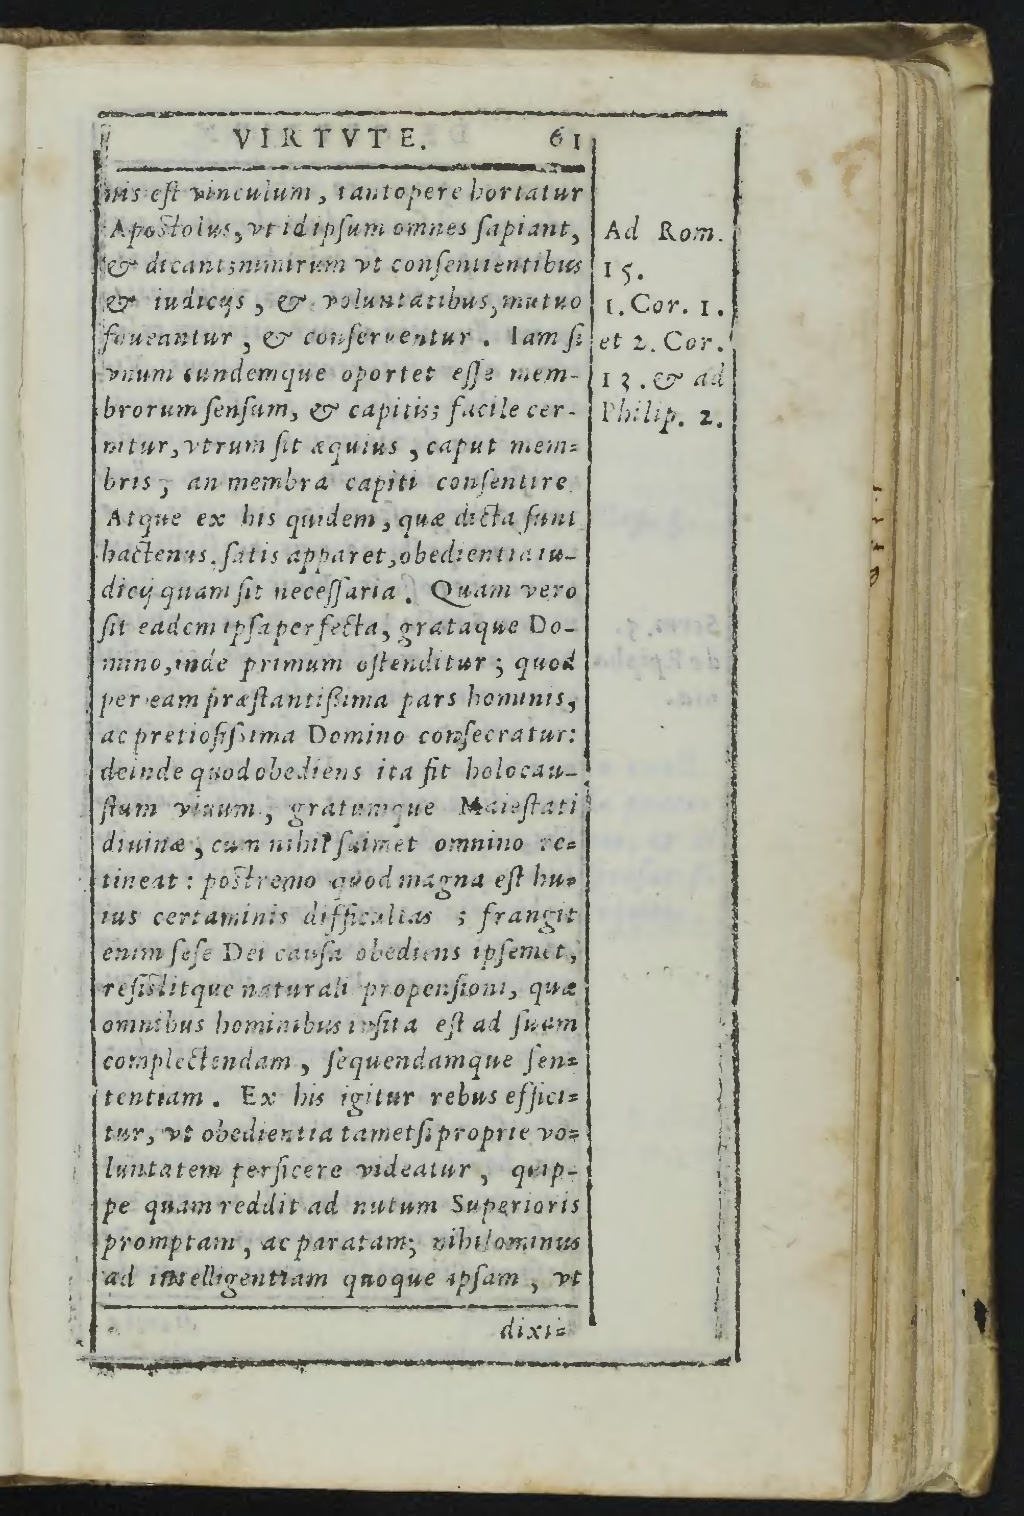 VIRTVTE. 61
nis est vinculum, tantopere hortatur
Apostolus, vt id ipsum omnes sapiant,
& dicant; nimirum vt consentientibus
& iudicijs, & voluntatibus, mutuo
foueantur, & conseruentur. Iam si
vnum eundemque oportet esse mem-
brorum sensum, & capitis; facile cer-
nitur, vtrum sit æquius, caput mem-
bris, an membra capiti consentire.
Atque ex his quidem, quæ dicta sunt
hactenus, satis apparet, obedientia iu-
dicij quam sit necessaria. Quam vero
sit eadem ipsa perfecta, grataque Do-
mino, inde primum ostenditur; quod
per eam præstantissima pars hominis,
ac pretiosissima Domino consecratur:
deinde quod obediens ita fit holocau-
stum viuum, gratumque Maiestati
diuinæ, cum nihil suimet omnino re-
tineat: postremo quod magna est hu-
ius certaminis difficultas; frangit
enim sese Dei causa obediens ipsemet,
resistitque naturali propensioni, quæ
omnibus hominibus insita est ad suam
complectendam, sequendamque sen-
tentiam. Ex his igitur rebus effici-
tur, vt obedientia tametsi proprie vo-
luntatem perficere videatur, quip-
pe quam reddit ad nutum Superioris
promptam, ac paratam; nihilominus
ad intelligentiam quoque ipsam, vt
dixi-
Ad Rom.
15.
1. Cor. 1.
et 2. Cor.
13. & ad
Philip. 2.